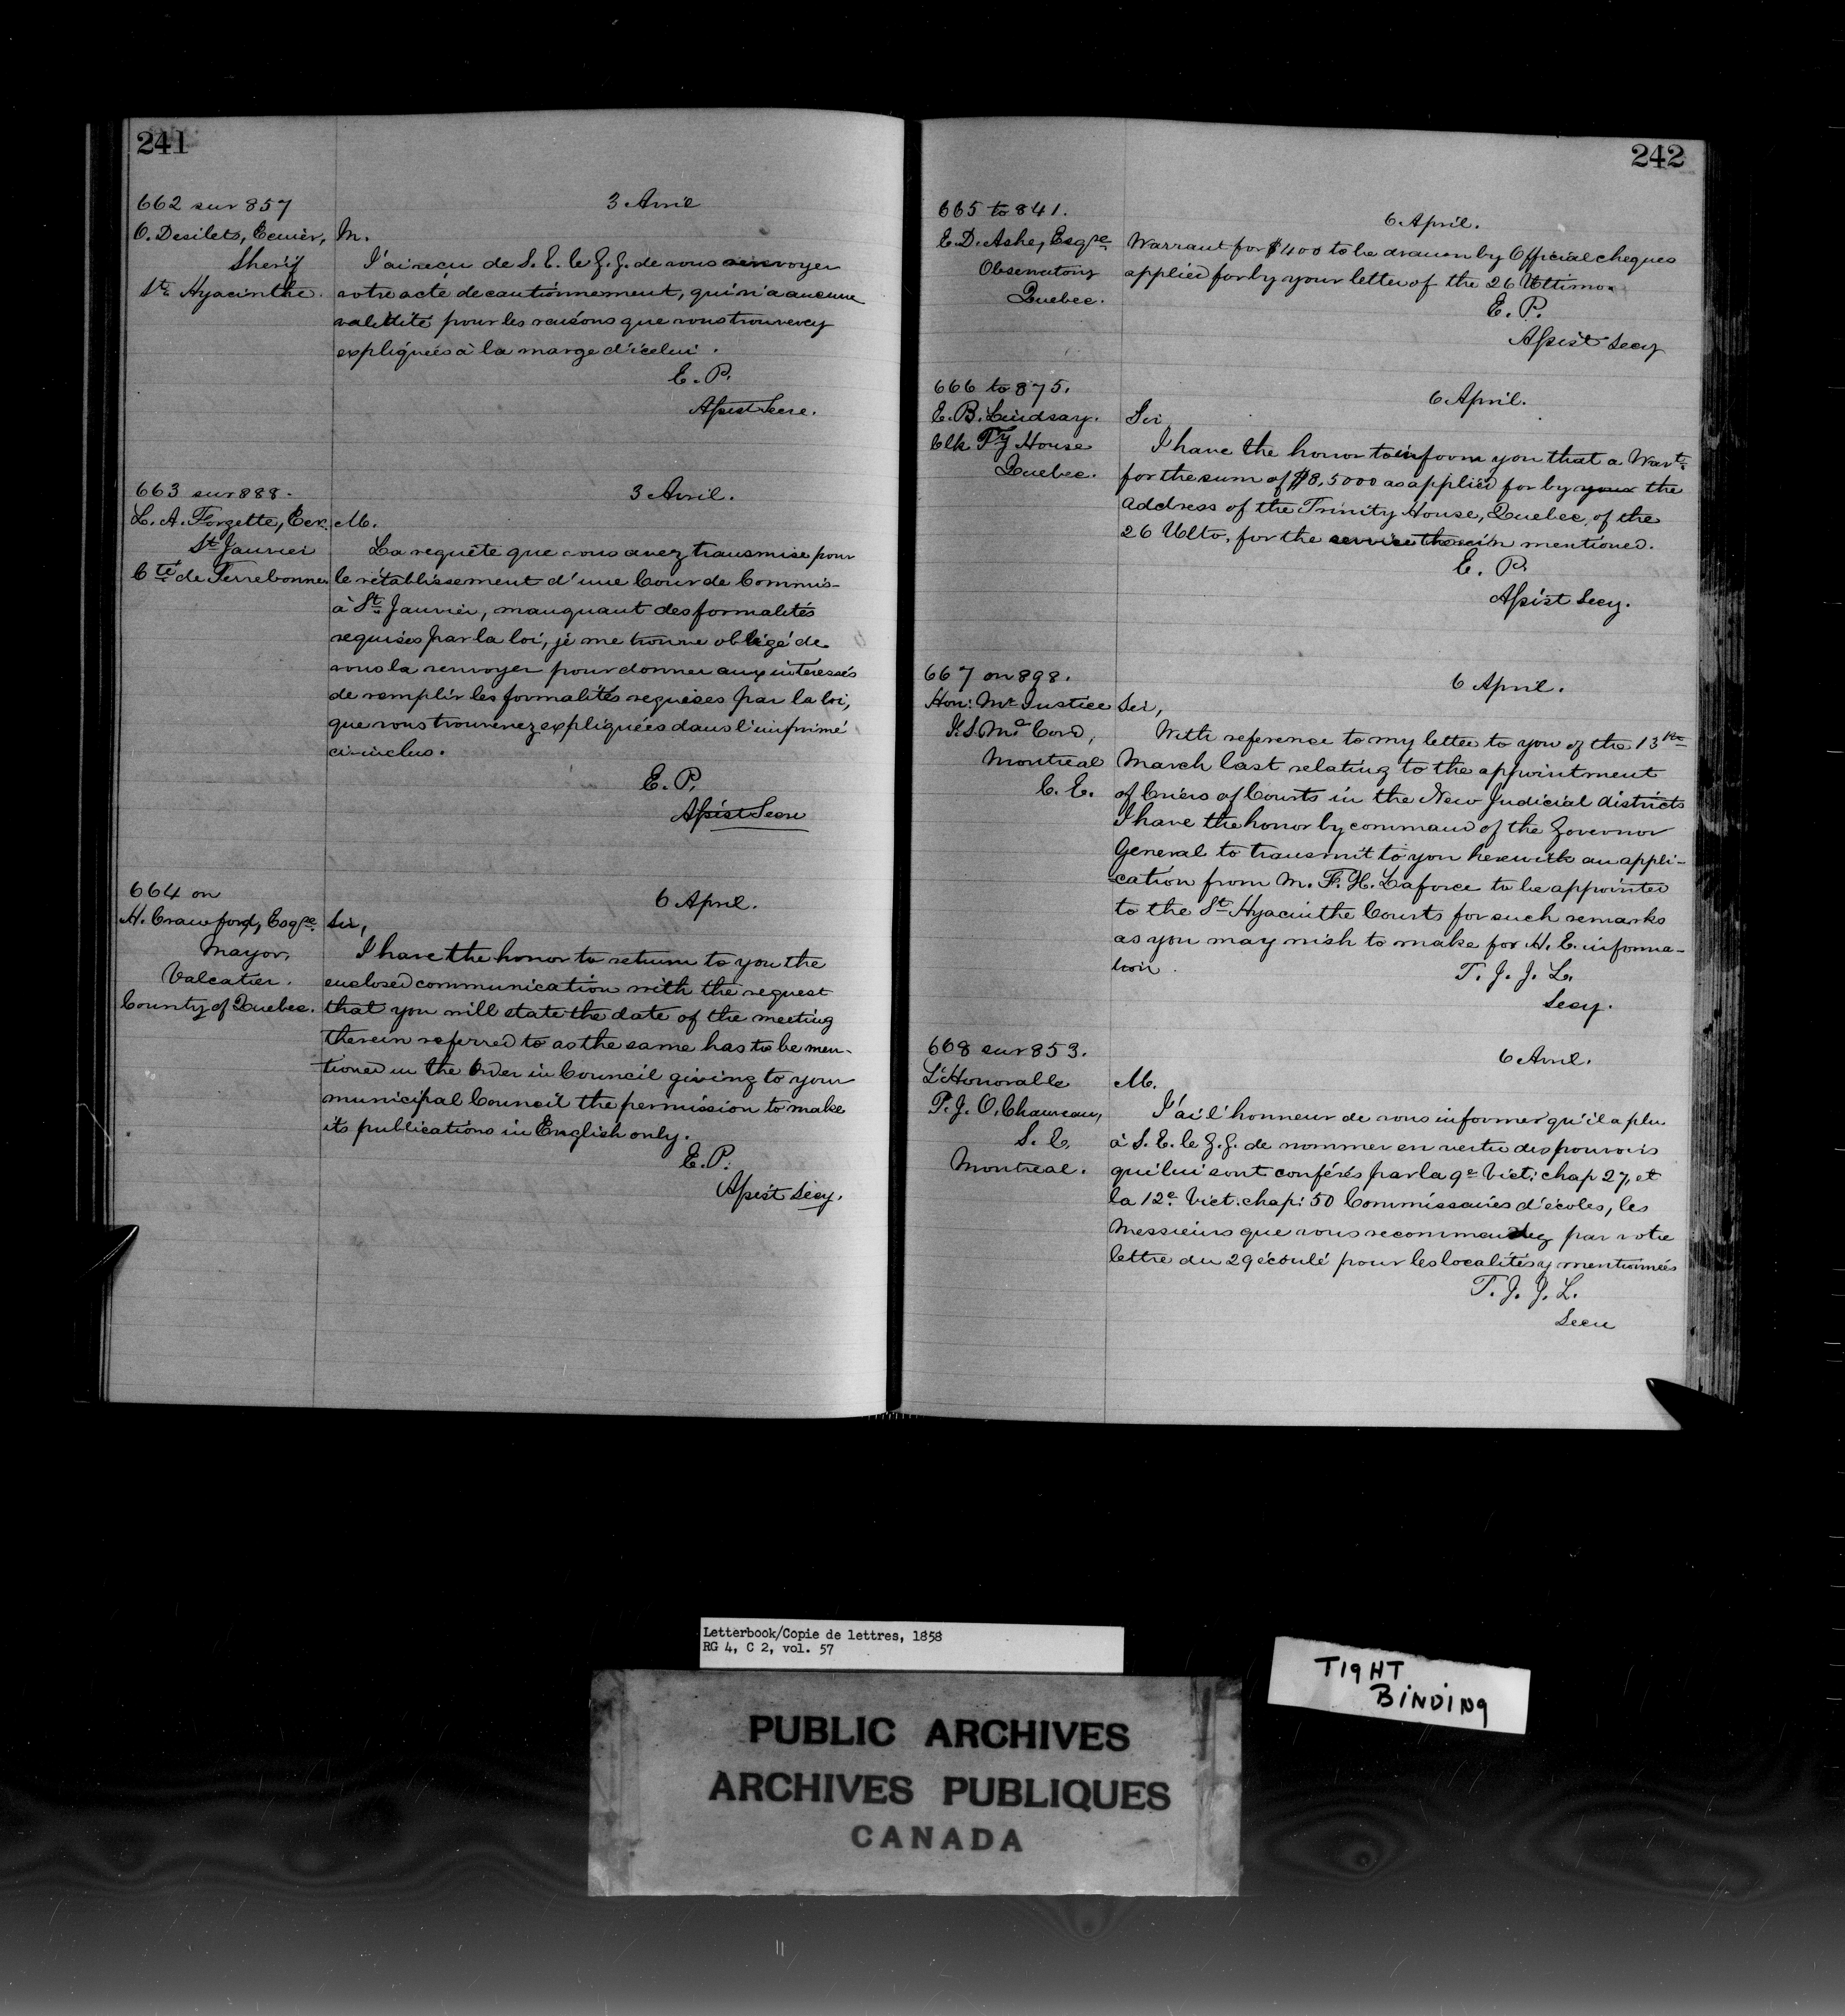 241
662 sur 857
3 Avril
O. Desilets, Ecuier,
Sherif
St. Hyacinthe.
M.
J'ai recu de S. E. le G. G. de vous renvoyer
votre acte de cautionnement, qui n'a aucune
validité pour les raisons que vous trouverez
expliquées à la marge d'icelui.
E. P.
Assist Secre.
663 sur 888.
3 Avril.
L. A. Forgette, Ecr.
St Janvier
Cté de Terrebonne
M.
La requête que vous avez transmise pour
le rétablissement d'une Cour de Commis-
à St. Janvier, manquant des formalités
requises par la loi, je me trouve obligé de
vous la renvoyer pour donner aux intéressés
de remplir les formalités requises par la loi,
que vous trouverez expliquées dans l'imprimé
ci-inclus.
E. P.
Assist Secre
664 on
6 April.
H. Crawford, Esqre.
Mayor,
Valcatier.
County of Quebec.
Sir,
I have the honor to return to you the
enclosed communication with the request
that you will state the date of the meeting
therein referred to as the same has to be men-
tioned in the Order in Council giving to your
municipal Council the permission to make
its publications in English only.
E. P.
Assist Secy.
242
665 to 841.
6 April.
E. D. Ashe, Esqre
Observatory
Quebec.
Warrant for $400 to be drawn by Official cheques
applied for by your letter of the 26 Ultimo.
E. P.
Assist Secy
666 to 875.
6 April.
E. B. Lindsay.
Clk Ty House
Quebec.
Sir,
I have the honor to inform you that a Wart.
for the sum of $8,5000 as applied for by your the
Address of the Trinity House, Quebec, of the
26 Ulto, for the service therein mentioned.
E. P.
Assist Secy.
667 on 898.
6 April.
Hon: Mr Justice
J. S. Mc Cord,
Montreal
C. E.
Sir,
With reference to my letter to you of the 13th
March last relating to the appointment
of Criers of Courts in the New Judicial districts
I have the honor by command of the Governor
General to transmit to you herewith an appli-
-cation from M. F. H. Laforce to be appointed
to the St Hyacinthe Courts for such remarks
as you may wish to make for H. E. informa-
tion.
T. J. J. L.
Secy.
668 sur 853.
6 Avril.
L'Honorable
P. J. O. Chauveau,
S. E.
Montreal.
M.
J'ai l'honneur de vous informer qu'il a plu
à S. E. le G. G. de nommer en vertu des pouvoirs
qui lui sont conférés par la 9e Vict: chap 27, et
la 12e. Vict. chap: 50 Commissaires d'écoles, les
Messieurs que vous recommandez par votre
lettre du 29 écoulé pour les localités y mentionnées
T. J. J. L.
Secre
Letterbook/Copie de lettres, 1858
RG 4, C 2, vol. 57
TIGHT
BINDING
PUBLIC ARCHIVES
ARCHIVES PUBLIQUES
CANADA